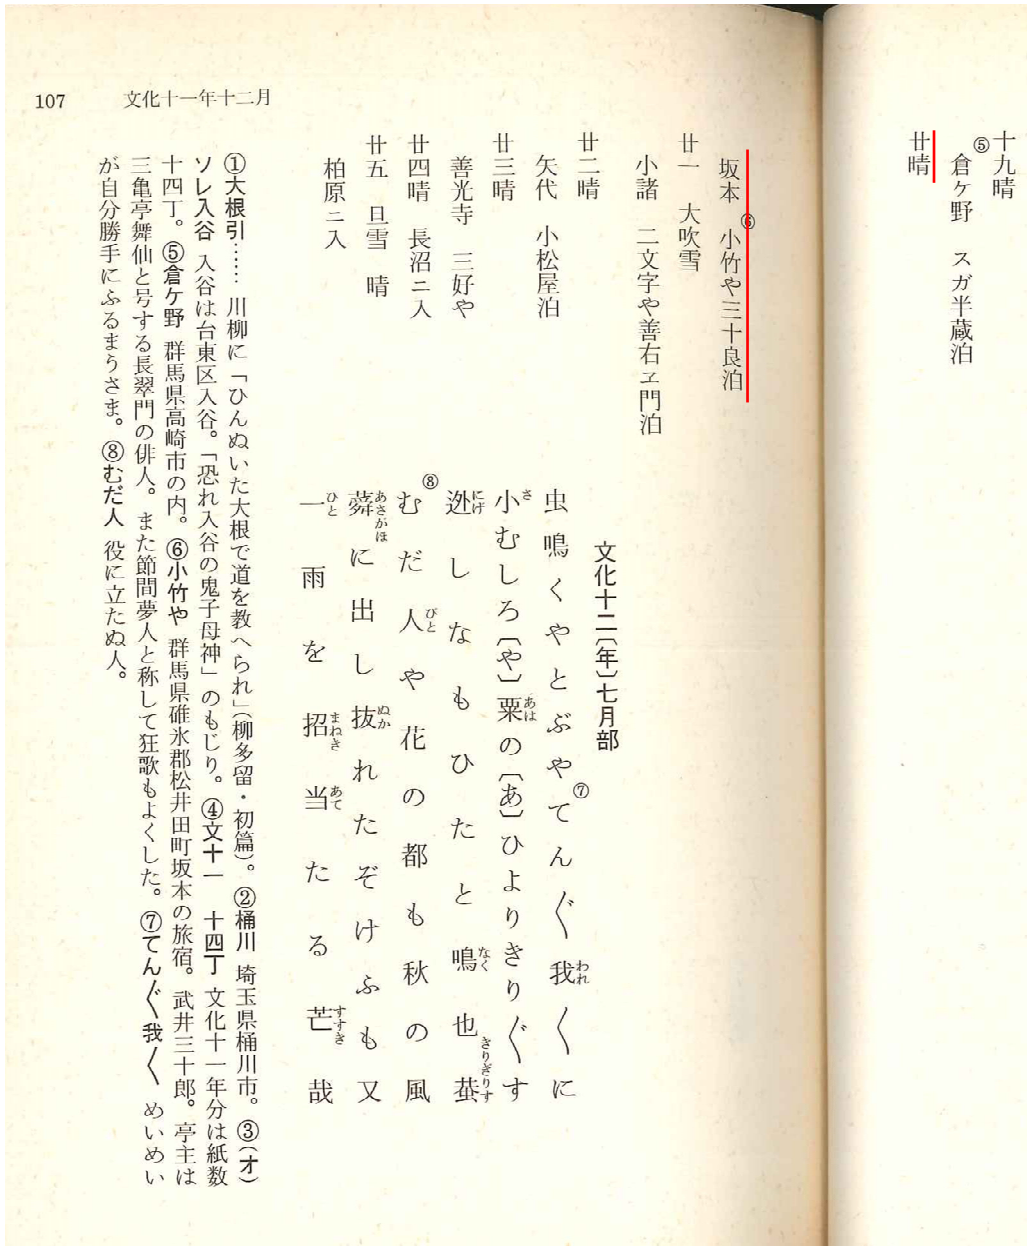 十九晴
⑤倉ヶ野　スガ半蔵泊
廿晴
坂本　⑥小竹や三十良泊
廿一　大吹雪
小諸　二文字や善右ヱ門泊
廿二晴
矢代　小松屋泊
廿三晴
善光寺　三好や
廿四晴　長沼ニ入
廿五　旦雪　晴
柏原ニ入
文化十二〔年〕七月部
虫鳴くやとぶやてん⑦〴〵我われ〳〵に
小さむしろ〔や〕粟あはの〔あ〕ひよりきり〴〵す
迯にげしなもひたと鳴なく也蛬きりぎりす
⑧むだ人びとや花の都も秋の風
蕣あさがほに出し抜ぬかれたぞけふも又
一ひと雨を招まねき当あてたる芒すすき哉
①大根引…… 川柳に「ひんぬいた大根で道を教へられ」（柳多留・初篇）。②桶川 埼玉県桶川市。③〔オ〕
ソレ入谷 入谷は台東区入谷。「恐れ入谷の鬼子母神」のもじり。④文十一　十四丁 文化十一年分は紙数
十四丁。⑤倉ケ野 群馬県高崎市の内。⑥小竹や 群馬県碓氷郡松井田町坂本の旅宿。武井三十郎。亭主は
三亀亭舞仙と号する長翠門の俳人。また節間夢人と称して狂歌もよくした。⑦てん〴〵我〳〵 めいめい
が自分勝手にふるまうさま。⑧むだ人 役に立たぬ人。
文化十一年十二月
107